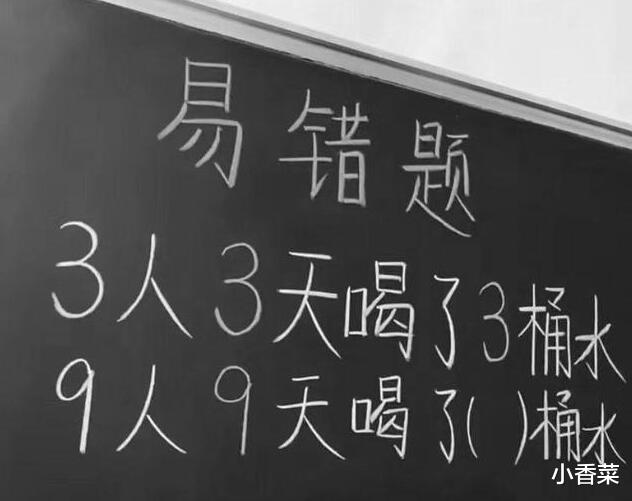 易错题
3人3天喝了3桶水
9人9天喝了( )桶水
小香菜